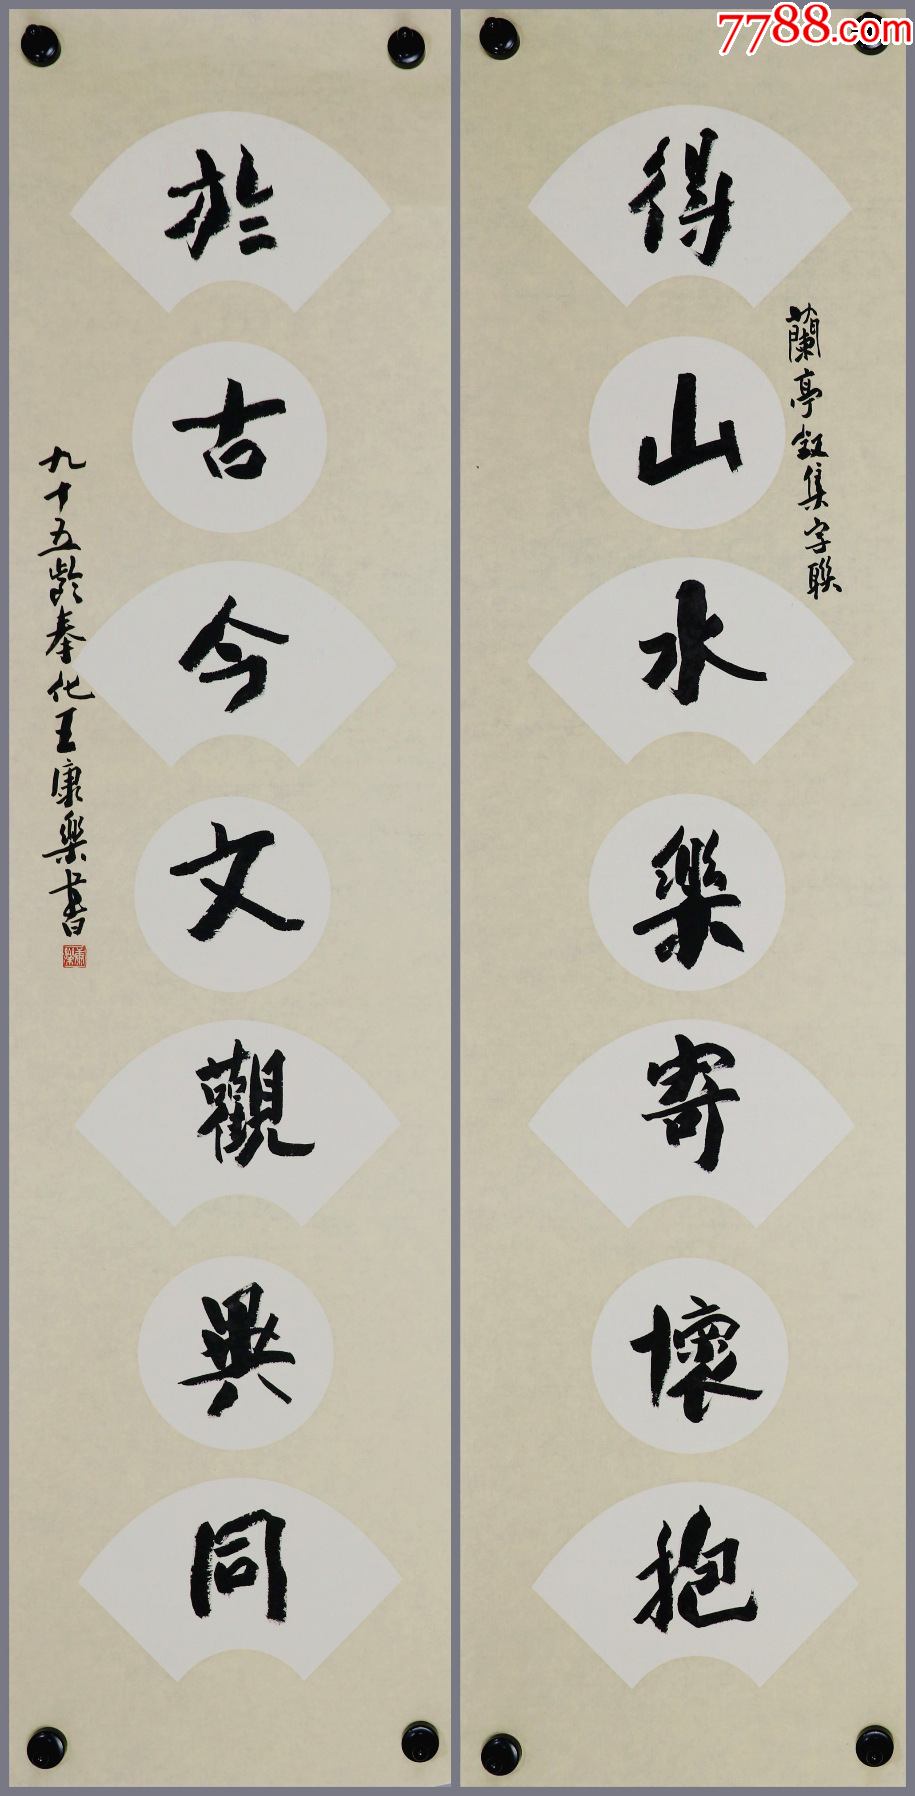 7788.com
蘭亭叙集字聯
得山水樂寄壞抱
於古今文觀異同
九十五龄奉化王康樂書
康樂